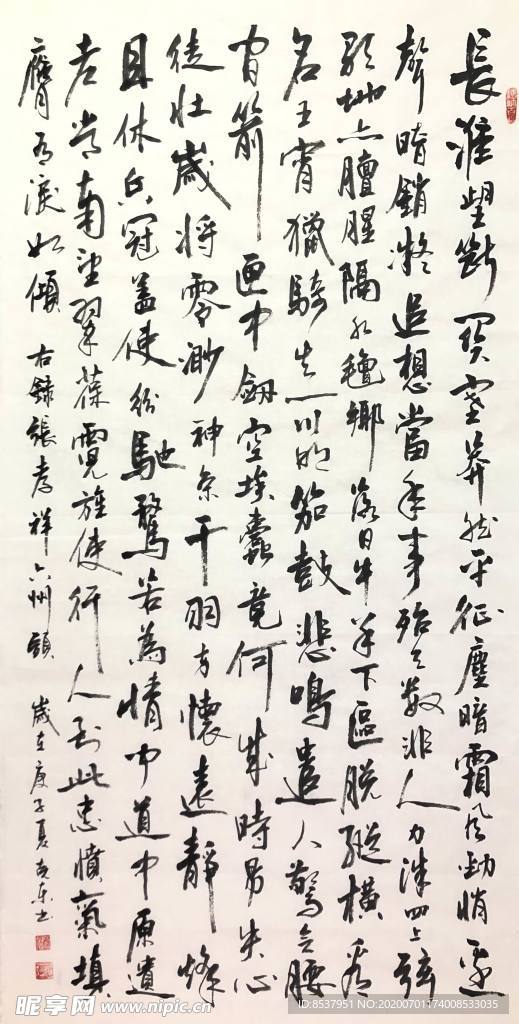 長淮望斷關塞莽然平征塵暗霜風勁悄邊
聲暗銷凝追想當年事殆天數非人力洙四上絃
歌地亦膻腥隔水氈鄉落日牛羊下區脫縱橫看
名王宵獵騎火一川明笳鼓悲鳴遣人驚念腰
間箭匣中劍空埃蠹竟何成時易失心
徒壯歲將零渺神京干羽方懷遠靜烽
且休兵冠蓋使紛馳騖若為情聞道中原遺
老常南望翠葆霓旌使行人到此忠憤氣填
膺有淚如傾 右錄張孝祥六州頭 歲在庚子夏書
昵享网 www.nipic.cn
ID:8537951 NO:20200701174008533035